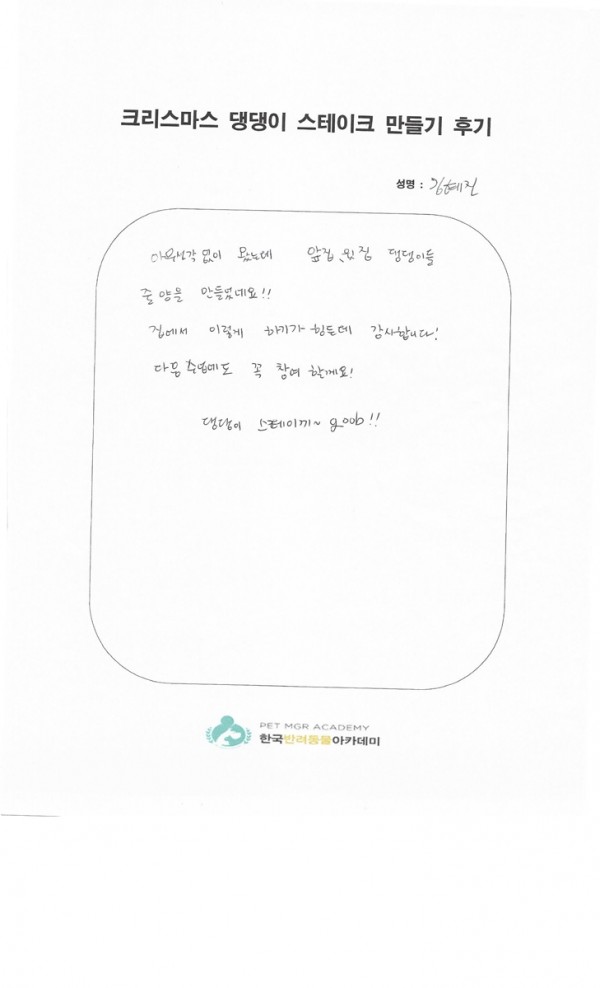 크리스마스 댕댕이 스테이크 만들기 후기
성명 : 김혜진
아무생각 없이 왔는데 앞집, 뒷집 댕댕이들
줄 양을 만들었네요!!
집에서 이렇게 하기가 힘든데 감사합니다!
다음 수업에도 꼭 참여 할게요!
댕댕이 스테이끼~ good!!
PET MGR ACADEMY
한국반려동물아카데미